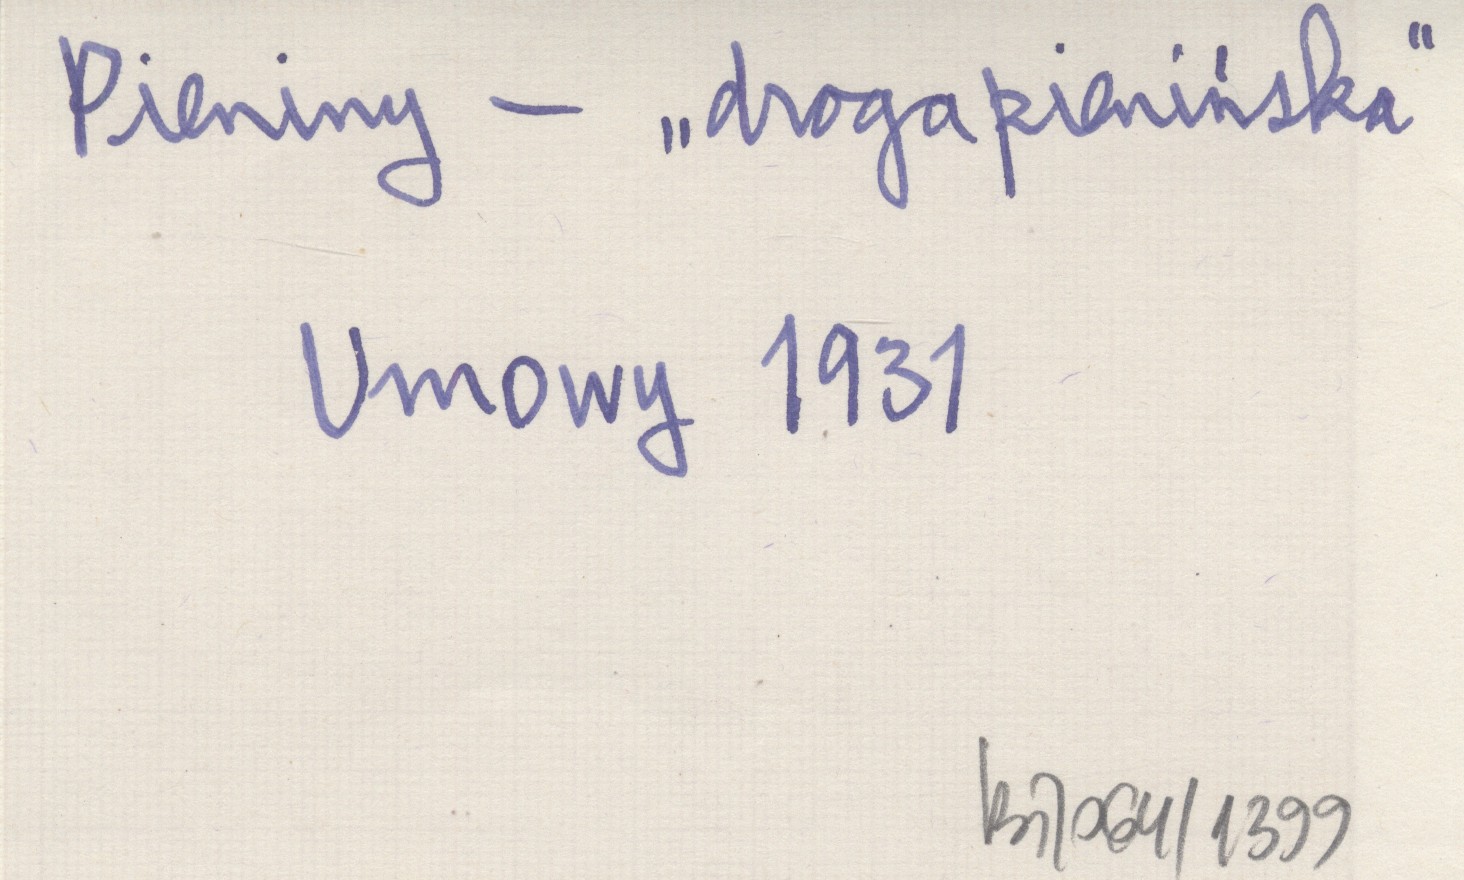 Pieniny – „droga pienińska"
Umowy 1931
1399